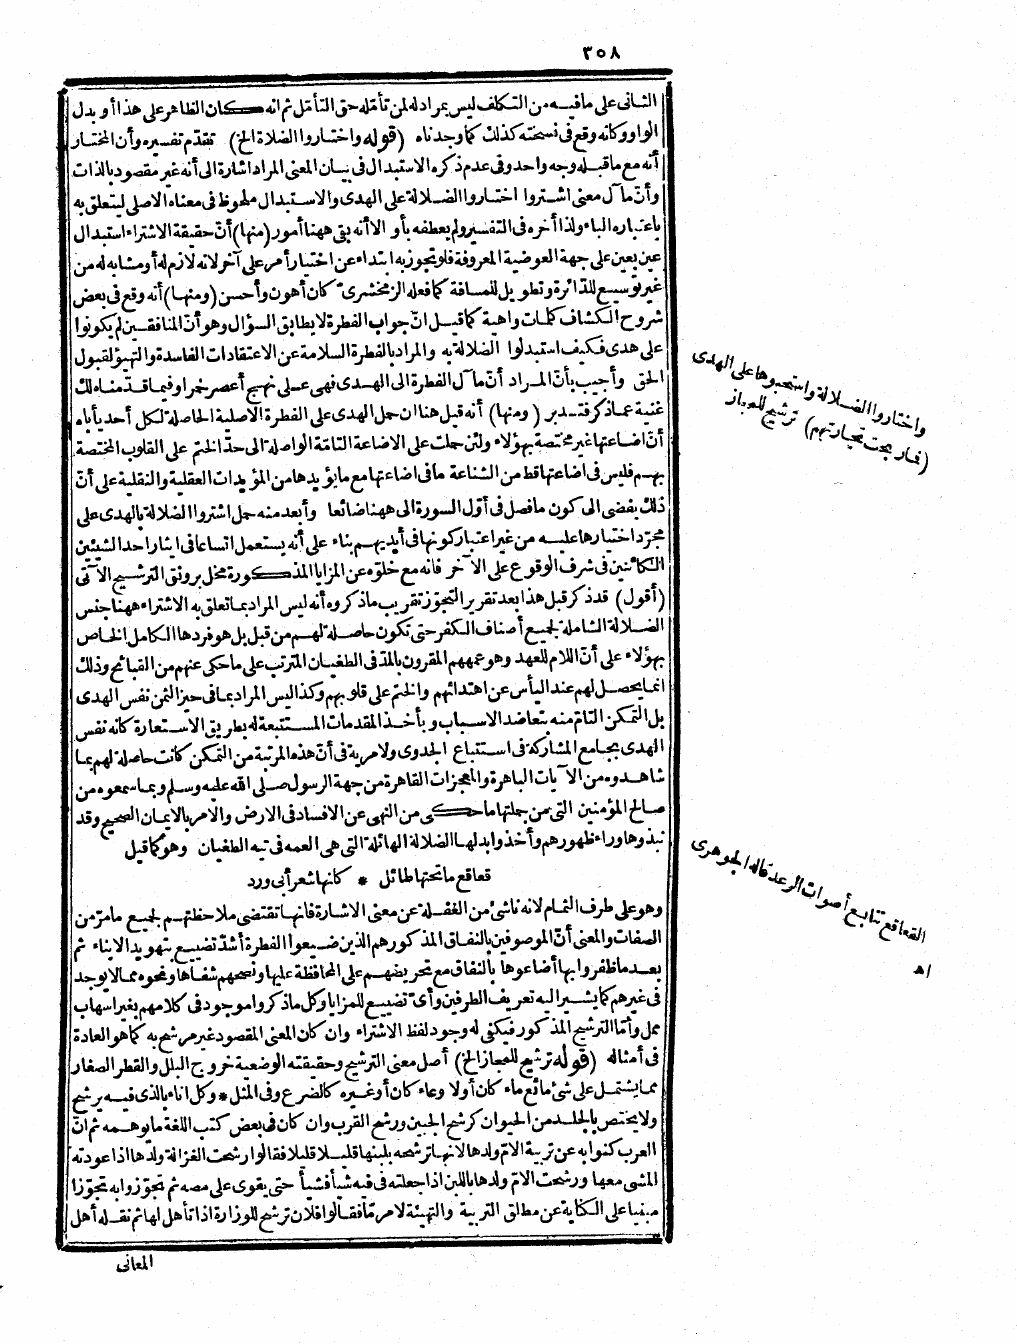 ٣٥٨
الثانى على مافيه من التكلف ليس بمراد له لمن تأمله حق التأمل ثم انه كان الظاهر على هذا أو بدل
الواو وكانه وقع فى نسخته كذلك كما وجدناه (قوله واختاروا الضلالة الخ) تقدّم تفسيره وأن المختار
أنه مع ماقبله وجه واحد وفى عدم ذكره الاستبدال فى بيان المعنى المراد اشارة الى أنه غير مقصود بالذات
وأنّ مآل معنى اشتروا اختاروا الضلالة على الهدى والاستبدال ملحوظ فى معناه الاصلى ليتعلق به
باعتباره الباء ولذا أخره فى التفسير ولم يعطفه بأو الا أنه بقى ههنا أمور (منها) أنّ حقيقة الاشتراء استبدال
عين بعين على جهة العوضية المعروفة فلو تجوز به ابتداء عن اختيار أمر على آخر لانه لازم له أو مشابه له من
غير توسيع للدائرة وتطويل للمسافة كما فعله الزمخشرىّ كان أهون وأحسن (ومنها) أنه وقع فى بعض
شروح الكشاف كلمات واهية كما قيل انّ جواب الفطرة لا يطابق السؤال وهو أنّ المنافقين لم يكونوا
على هدى فكيف استبدلوا الضلالة به والمراد بالفطرة السلامة عن الاعتقادات الفاسدة والتهيؤ لقبول
الحق وأجيب بأنّ المراد أنّ مآل الفطرة الى الهدى فهى على نهج أعصر خمرا وفيما قدّمناه لك
غنية عماذكر فتدبر (ومنها) أنه قيل هنا ان حمل الهدى على الفطرة الاصلية الحاصلة لكل أحد يأباه
أنّ اضاعتها غير مختصة بهؤلاء ولئن حملت على الاضاعة التامّة الواصلة الى حدّ الختم على القلوب المختصة
بهم فليس فى اضاعتها فقط من الشناعة مافى اضاعتها مع مايؤيدها من المؤيدات العقلية والنقلية على أنّ
ذلك يفضى الى كون مافصل فى أوّل السورة الى ههنا ضائعا وأبعد منه حمل اشتروا الضلالة بالهدى على
مجرّد اختيارها عليه من غير اعتبار كونها فى أيديهم بناء على أنه يستعمل اتساعا فى ايثار احد الشيئين
الكائنين فى شرف الوقوع على الآخر فانه مع خلوّه عن المزايا المذكورة مخل برونق الترشيح الآتى
(أقول) قد ذكر قبل هذا بعد تقرير التجوّز تقريب ماذكروه أنه ليس المراد بما تعلق به الاشتراء ههنا جنس
الضلالة الشاملة لجميع أصناف الكفر حتى تكون حاصلة لهم من قبل بل هو فردها الكامل الخاص
بهؤلاء على أنّ اللام للعهد وهو عمههم المقرون بالمدّ فى الطغيان المترتب على ماحكى عنهم من القبائح وذلك
انما يحصل لهم عند اليأس عن اهتدائهم والختم على قلوبهم وكذا ليس المراد بما فى حيز الثمن نفس الهدى
بل التمكن التامّ منه بتعاضد الاسباب وبأخذ المقدمات المستتبعة له بطريق الاستعارة كانه نفس
الهدى بجامع المشاركة فى استتباع الجدوى ولامرية فى أنّ هذه المرتبة من التمكن كانت حاصلة لهم بما
شاهدوه من الآيات الباهرة والمعجزات القاهرة من جهة الرسول صلى الله عليه وسلم وبما سمعوه من
صالح المؤمنين التى من جملتها ماحكى من النهى عن الافساد فى الارض والامر بالايمان الصحيح وقد
نبذوها وراء ظهورهم وأخذوا بدلها الضلالة الهائلة التى هى العمه فى تيه الطغيان وهو كما قيل
قعاقع ماتحتها طائل * كانها شعر أبى ورد
وهو على طرف التمام لانه ناشئ من الغفلة عن معنى الاشارة فانها تقتضى ملاحظتهم بجميع مامرّ من
الصفات والمعنى أنّ الموصوفين بالنفاق المذكور هم الذين ضيعوا الفطرة أشدّ تضييع بتهويد الآباء ثم
بعد ماظفروا بها أضاعوها بالنفاق مع تحريضهم على المحافظة عليها ونصحهم شفاها ونحوه مما لا يوجد
فى غيرهم كما يشير اليه تعريف الطرفين وأىّ تضييع للمزايا وكل ماذكر واموجود فى كلامهم بغير اسهاب
ممل وأمّا الترشيح المذكور فيكفى له وجود لفظ الاشتراء وان كان المعنى المقصود غير مرشح به كما هو العادة
فى أمثاله (قوله ترشيح للمجاز الخ) أصل معنى الترشيح وحقيقته الوضعية خروج البلل والقطر الصغار
مما يشتمل على شئ مائع ماء كان أولا وعاء كان أو غيره كالضرع وفى المثل * وكل اناء بالذى فيه يرشح
ولا يختص بالجلد من الحيوان كرشح الجبين ورشح القرب وان كان فى بعض كتب اللغة مايوهمه ثم انّ
العرب كنوا به عن تربية الامّ ولدها لانها ترشحه بلبنها قليلا قليلا فقالوا رشحت الغزالة ولدها اذا عودته
المشى معها ورشحت الامّ ولدها باللبن اذا جعلته فى فيه شيأ فشيأ حتى يقوى على مصه ثم تجوّزوا به تجوّزا
مبنيا على الكناية عن مطلق التربية والتهيئة لامر مّا فقالوا فلان ترشح للوزارة اذا تأهل لها ثم نقله أهل
المعانى
واختاروا الضلالة واستحبوها على الهدى
(فما ربحت تجارتهم) ترشيح للمجاز
القعاقع تتابع أصوات الرعد قاله الجوهرى
اه